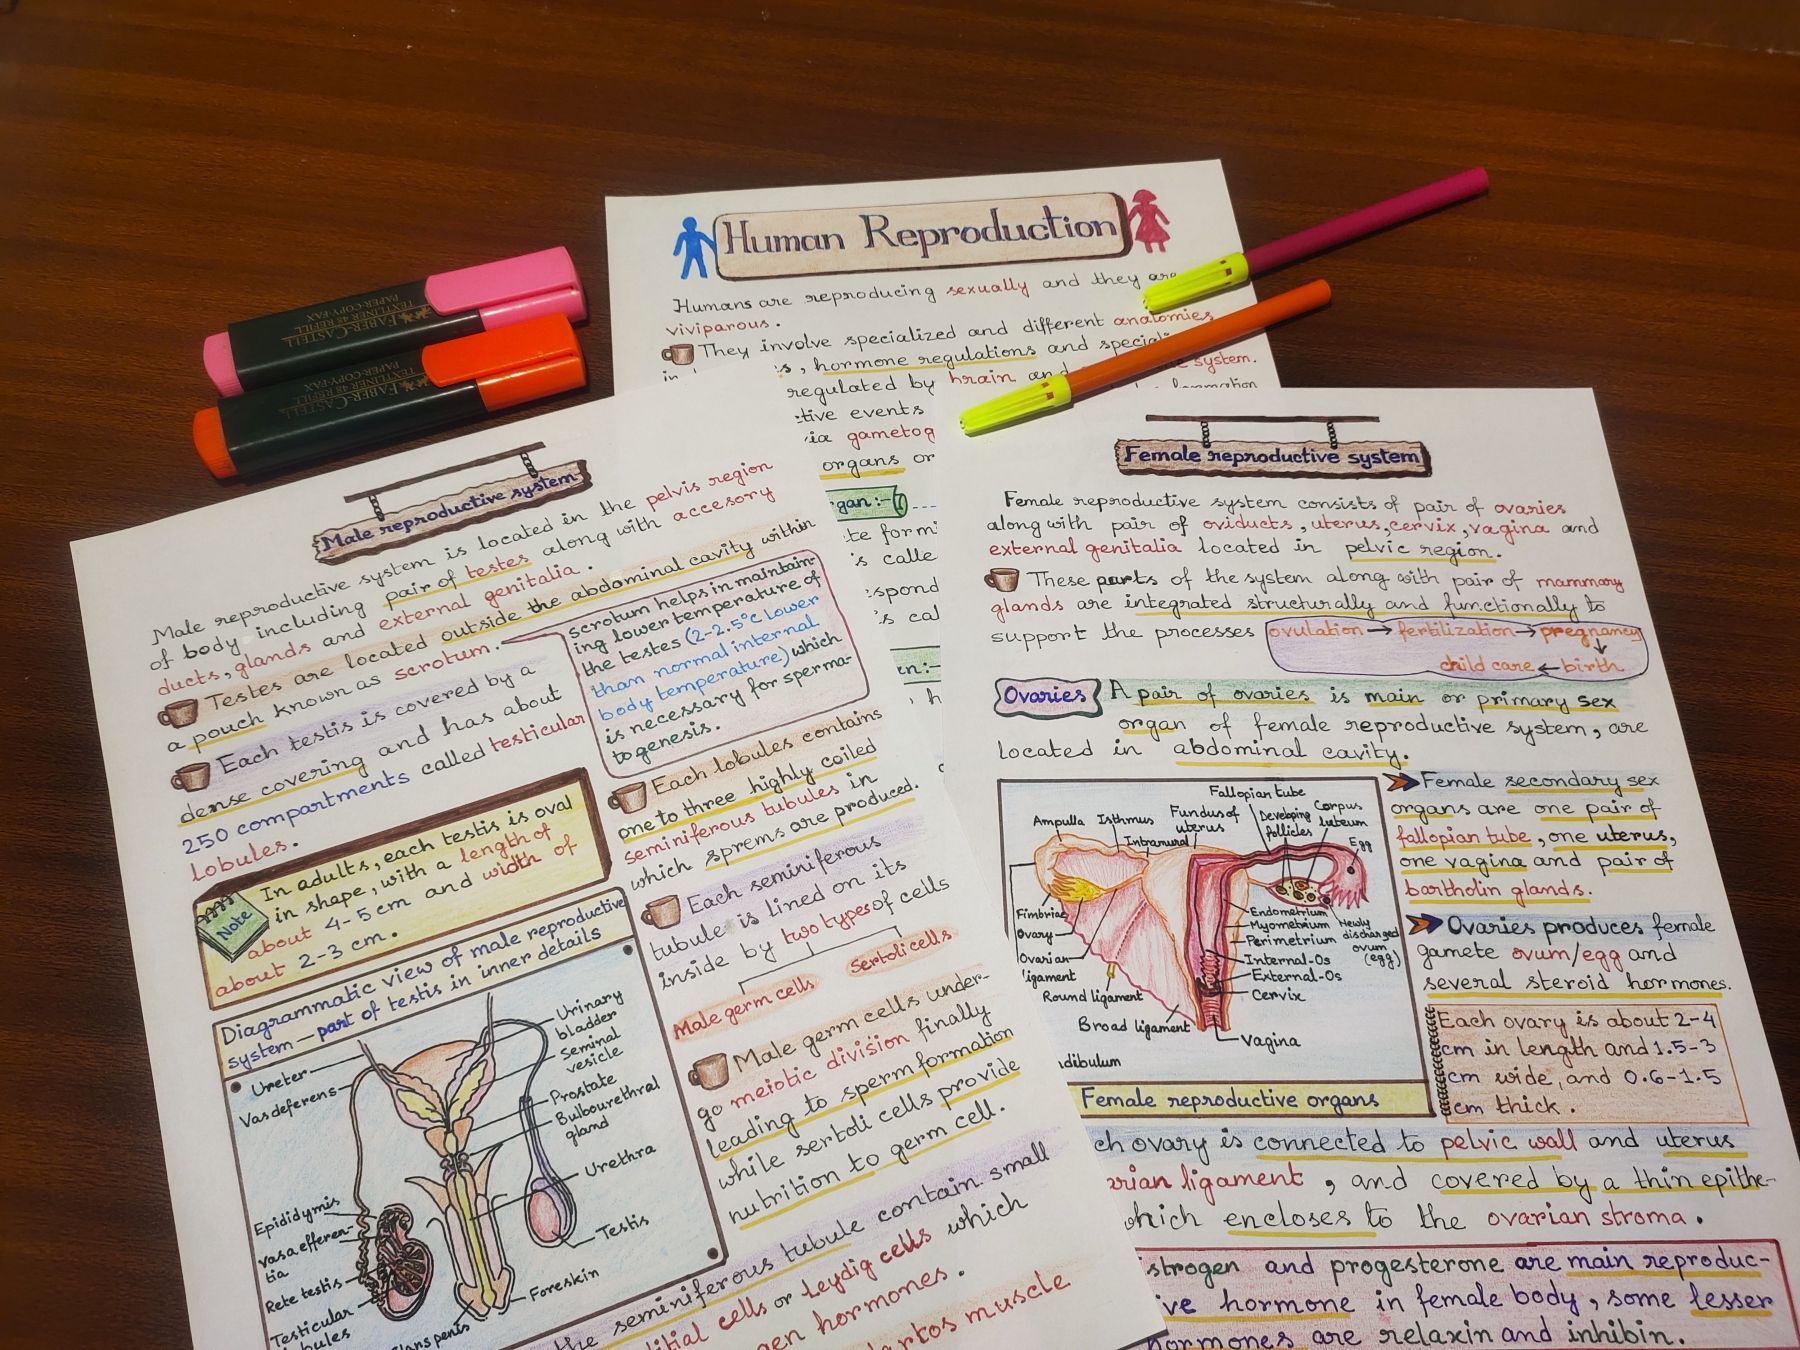 FABER-CASTELL
TEXTLINER 48 REFILL
PAPER-COPY-FAX
FABER-CASTELL
TEXTLINER 48 REFILL
PAPER-COPY-FAX
Human Reproduction
Humans are reproducing sexually and they are
viviparous.
They involve specialized and different anatomies
, hormone regulations and
regulated by brain and system.
formation
tive events
gametog
organs or
gan:-
te formi
s calle
spond
s cal
en:-
Male reproductive system
Male reproductive system is located in the pelvis region
of body including pair of testes along with accesory
ducts, glands and external genitalia.
Testes are located outside the abdominal cavity within
a pouch known as scrotum.
scrotum helps in maintain-
ing lower temperature of
the testes (2-2.5°c lower
than normal internal
body temperature) which
is necessary for sperma-
togenesis.
Each testis is covered by a
dense covering and has about
250 compartments called testicular
lobules.
Note
In adults, each testis is oval
in shape, with a length of
about 4-5 cm and width of
about 2-3 cm.
Diagrammatic view of male reproductive
system - part of testis in inner details
Ureter
Vas deferens
Epididymis
vasa efferen-
tia
Rete testis
Testicular
Glans penis
Urinary
bladder
Seminal
vesicle
Prostate
Bulbourethral
gland
Urethra
Testis
Foreskin
Each lobules contains
one to three highly coiled
seminiferous tubules in
which sprems are produced.
Each seminiferous
tubule is lined on its
inside by two types of cells
Male germ cells
Sertoli cells
Male germ cells under-
go meiotic division finally
leading to sperm formation
while sertoli cells provide
nutrition to germ cell.
the seminiferous tubule contain small
cells or leydig cells which
gen hormones.
muscle
Female reproductive system
Female reproductive system consists of pair of ovaries
along with pair of oviducts, uterus, cervix, vagina and
external genitalia located in pelvic region.
These parts of the system along with pair of mammary
glands are integrated structurally and functionally to
support the processes ovulation → fertilization → pregnancy
child care ← birth
Ovaries A pair of ovaries is main or primary sex
organ of female reproductive system, are
located in abdominal cavity.
Fallopian tube
Ampulla
Isthmus
Intramural
Fundus of
uterus
Developing
follicles
Corpus
luteum
Egg
Fimbriae
Ovary
Ovarian
ligament
Round ligament
Broad ligament
dibulum
Endometrium
Myometrium
Perimetrium
Internal-Os
External-Os
Cervix
Vagina
Newly
discharged
ovum
(egg)
Female reproductive organs
Female secondary sex
organs are one pair of
fallopian tube, one uterus,
one vagina and pair of
bartholin glands.
Ovaries produces female
gamete ovum/egg and
several steroid hormones.
Each ovary is about 2-4
cm in length and 1.5-3
cm wide, and 0.6-1.5
cm thick.
ch ovary is connected to pelvic wall and uterus
rian ligament, and covered by a thin epithe-
which encloses to the ovarian stroma.
strogen and progesterone are main reproduc-
ive hormone in female body, some lesser
hormones are relaxin and inhibin.